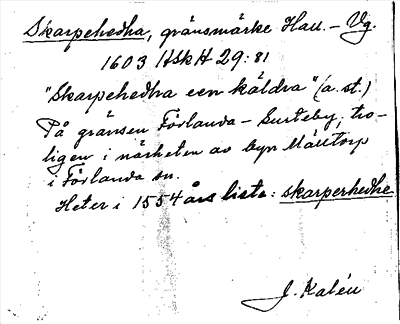 Skarpehedha, gränsmärke Hall. – Vg.
1603 HSkH 29:81
"Skarpehedha een käldra" (a.st.)
På gränsen Förlanda – Surteby, tro-
ligen i närheten av byn Målltorp
i Förlanda sn.
Heter i 1554 års lista: skarperhedhe
J. Kalén